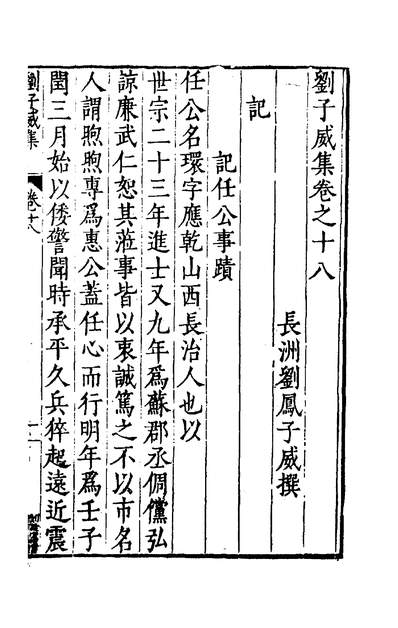 劉子威集卷之十八
長洲劉鳳子威撰
記
記任公事蹟
任公名環字應乾山西長治人也以
世宗二十三年進士又九年爲蘇郡丞倜儻弘
諒廉武仁恕其蒞事皆以衷誠篤之不以市名
人謂煦煦專爲惠公蓋任心而行明年爲壬子
閏三月始以倭警聞時承平久兵猝起遠近震
劉子威集
卷十八
一